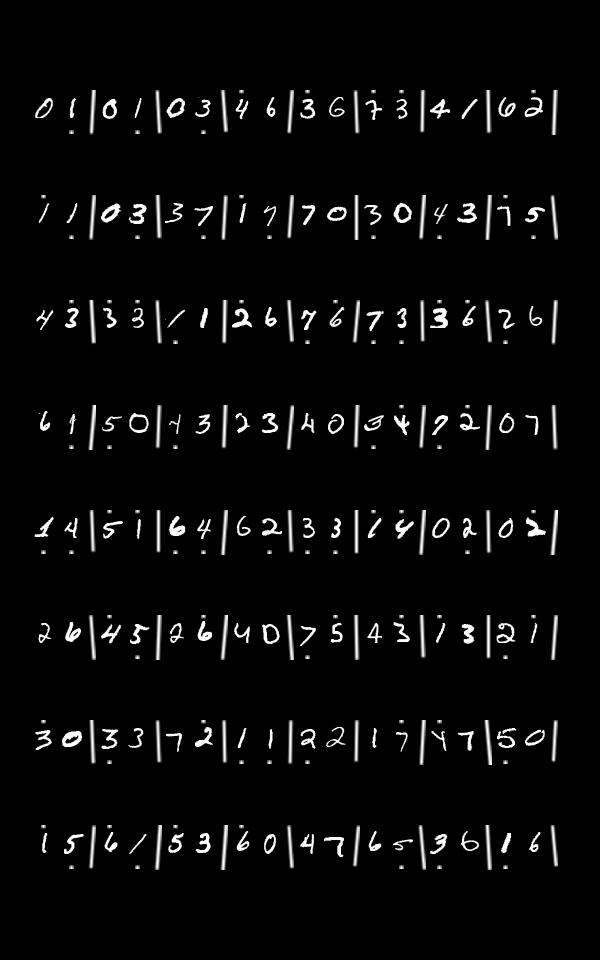 0 1̣ | 0 1̣ | 0 3̣ | 4̇ 6 | 3̇ 6 | 7̇ 3̇ | 4 1 | 6 2̇ |
1̇ 1̣ | 0 3̣ | 3 7̣ | 1̇ 7̣ | 7 0 | 3̣ 0 | 4̣ 3 | 7̇ 5̣ |
4 3̇ | 3̇ 3̇ | 1̣ 1 | 2 6 | 7 6̇ | 7̣ 3̣ | 3 6̇ | 2̣ 6 |
6 1̣ | 5̣ 0 | 4̣ 3 | 2 3 | 4 0 | 3̣ 4̇ | 7̣ 2̇ | 0 7 |
1̣ 4̣ | 5̇ 1̇ | 6̣ 4̣ | 6 2̣ | 3̣ 3̣ | 1̇ 4̇ | 0 2̣ | 0 2̇ |
2 6 | 4̇ 5̣ | 2 6̇ | 4 0 | 7̣ 5̇ | 4 3̇ | 1̇ 3 | 2̣ 1̇ |
3̇ 0 | 3̣ 3 | 7 2̇ | 1̣ 1̣ | 2̣ 2 | 1 7̇ | 4̇ 7 | 5̣ 0 |
1̇ 5̣ | 6̇ 1 | 5̇ 3 | 6̇ 0 | 4 7 | 6 5̣ | 3̣ 6 | 1̣ 6 |